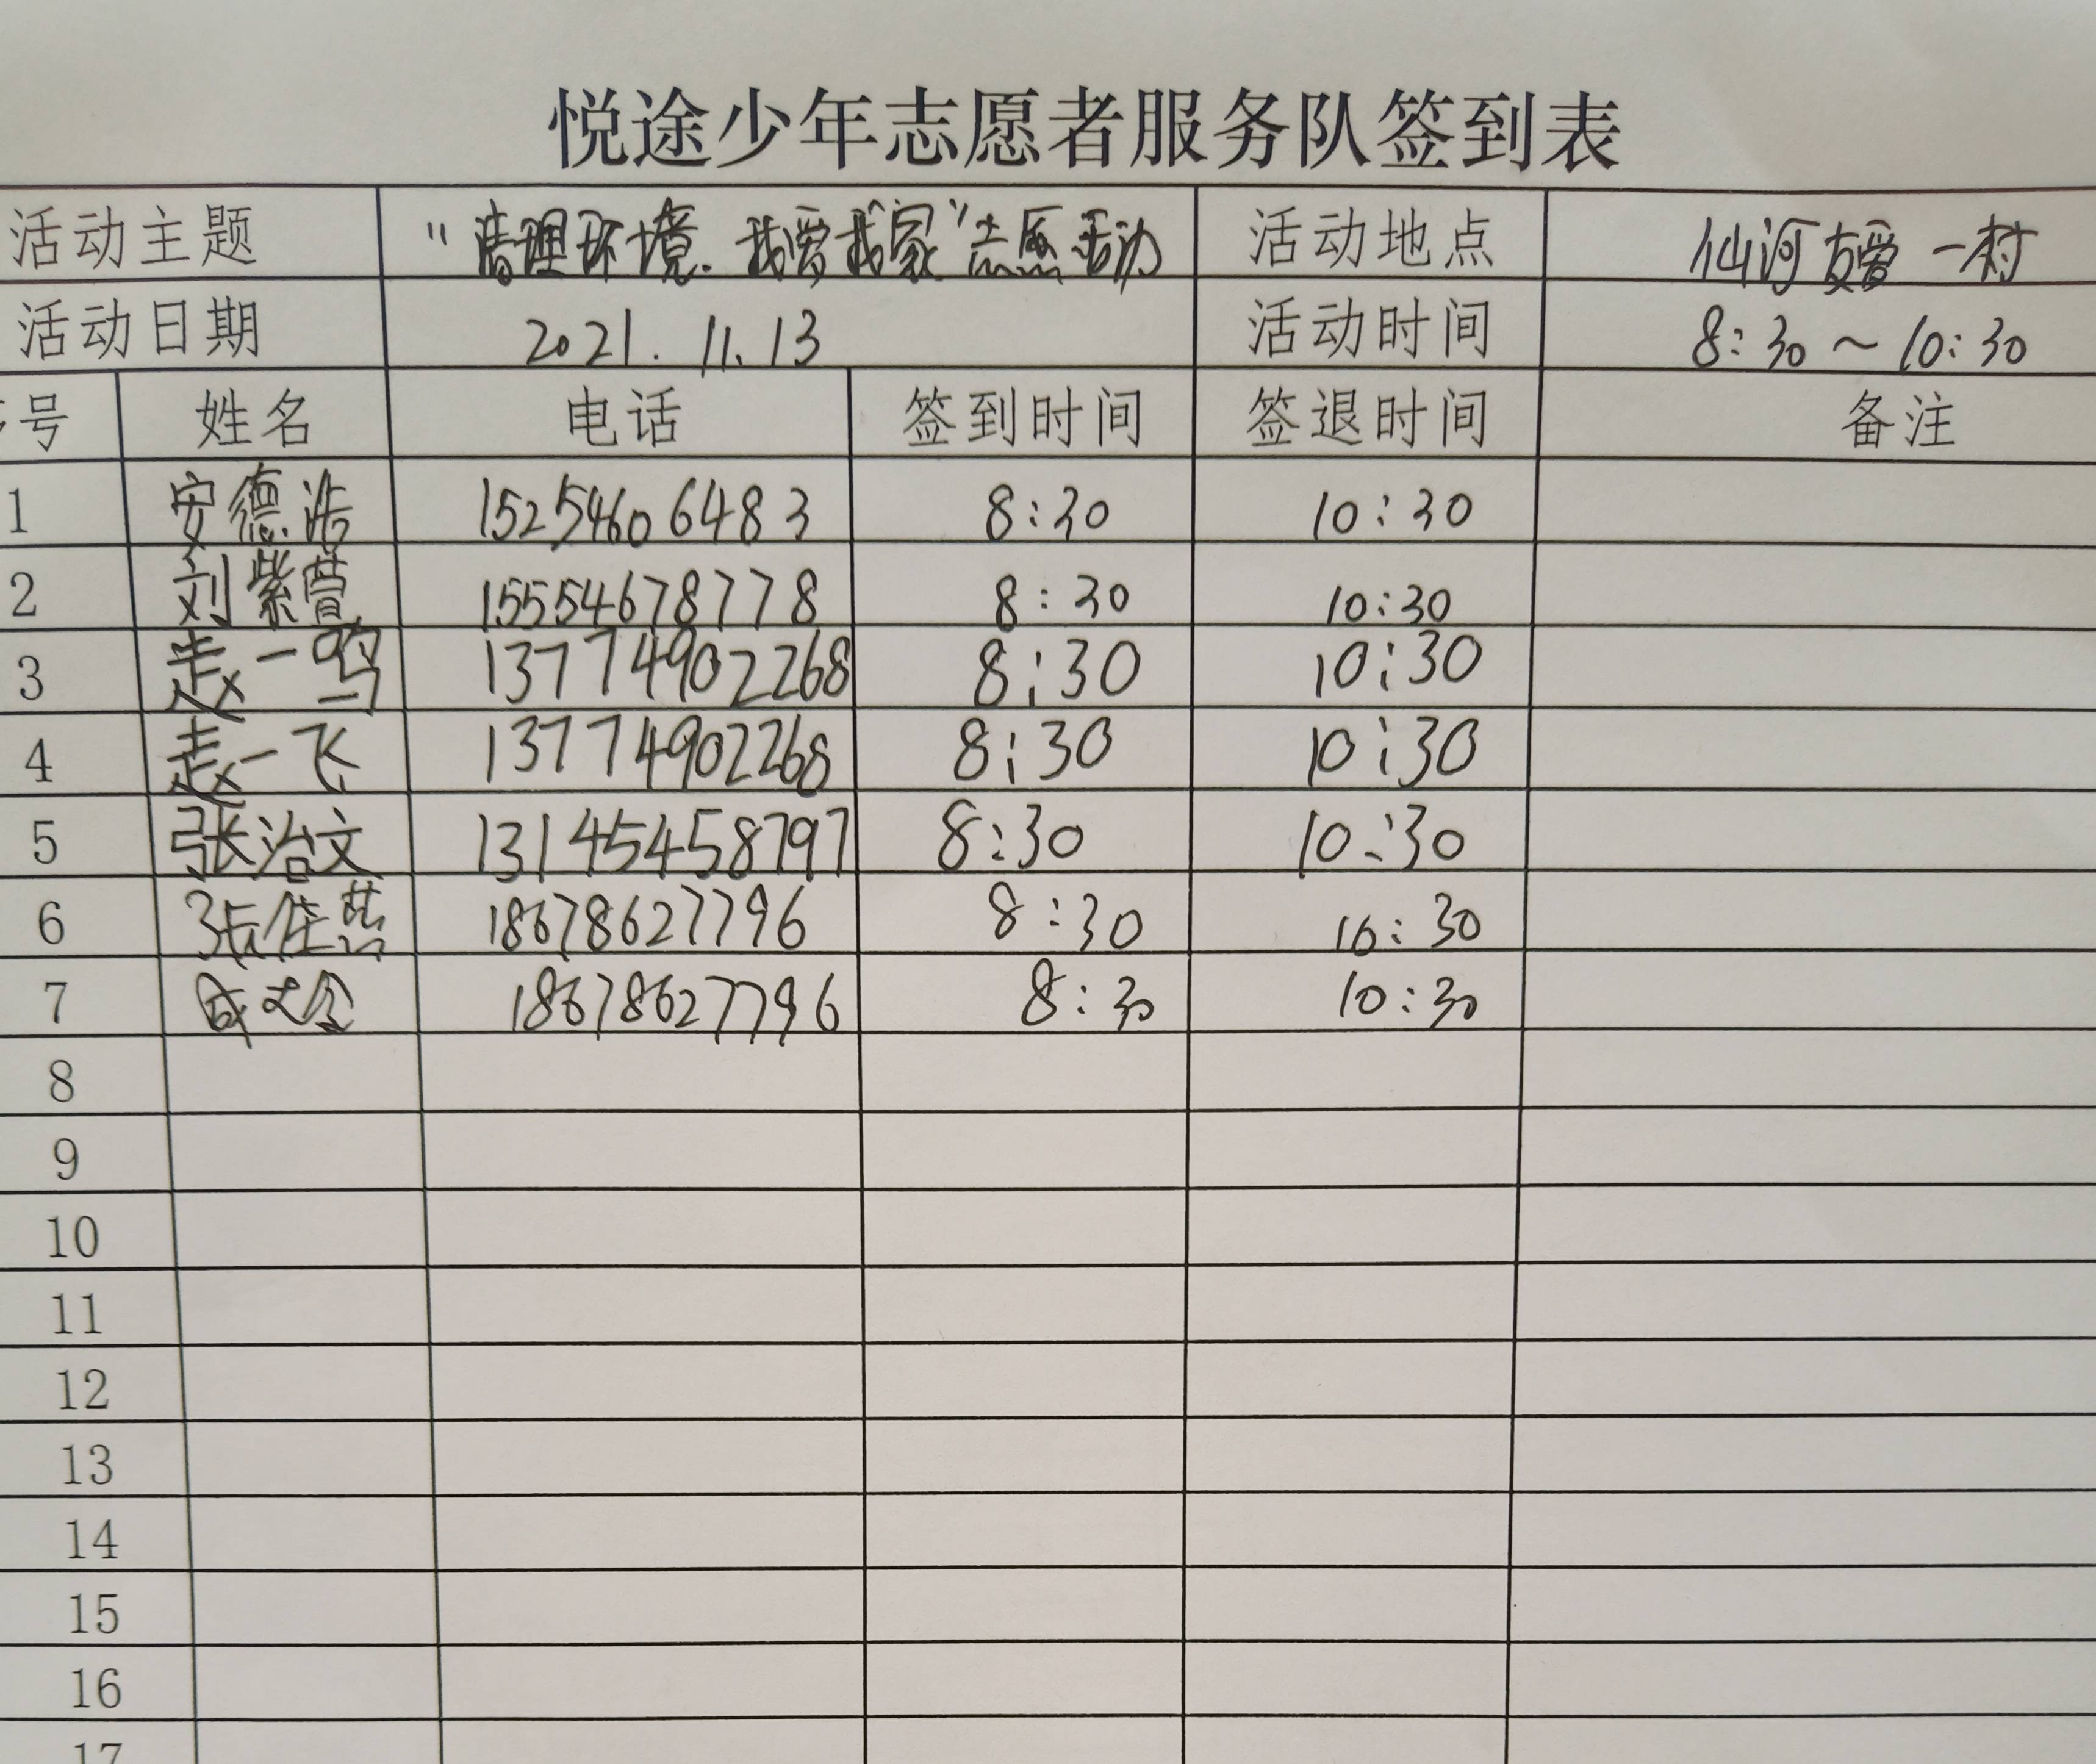 悦途少年志愿者服务队签到表
活动主题 "清理环境.我爱我家"志愿活动 活动地点 仙河友爱一村
活动日期 2021.11.13 活动时间 8:30~10:30
号 姓名 电话 签到时间 签退时间 备注
1 安德浩 15254606483 8:30 10:30
2 刘紫萱 15554678778 8:30 10:30
3 赵一鸣 13774902268 8:30 10:30
4 赵一飞 13774902268 8:30 10:30
5 张治文 131454458797 8:30 10:30
6 张佳 18678627796 8:30 10:30
7 18678627796 8:30 10:30
8
9
10
11
12
13
14
15
16
17